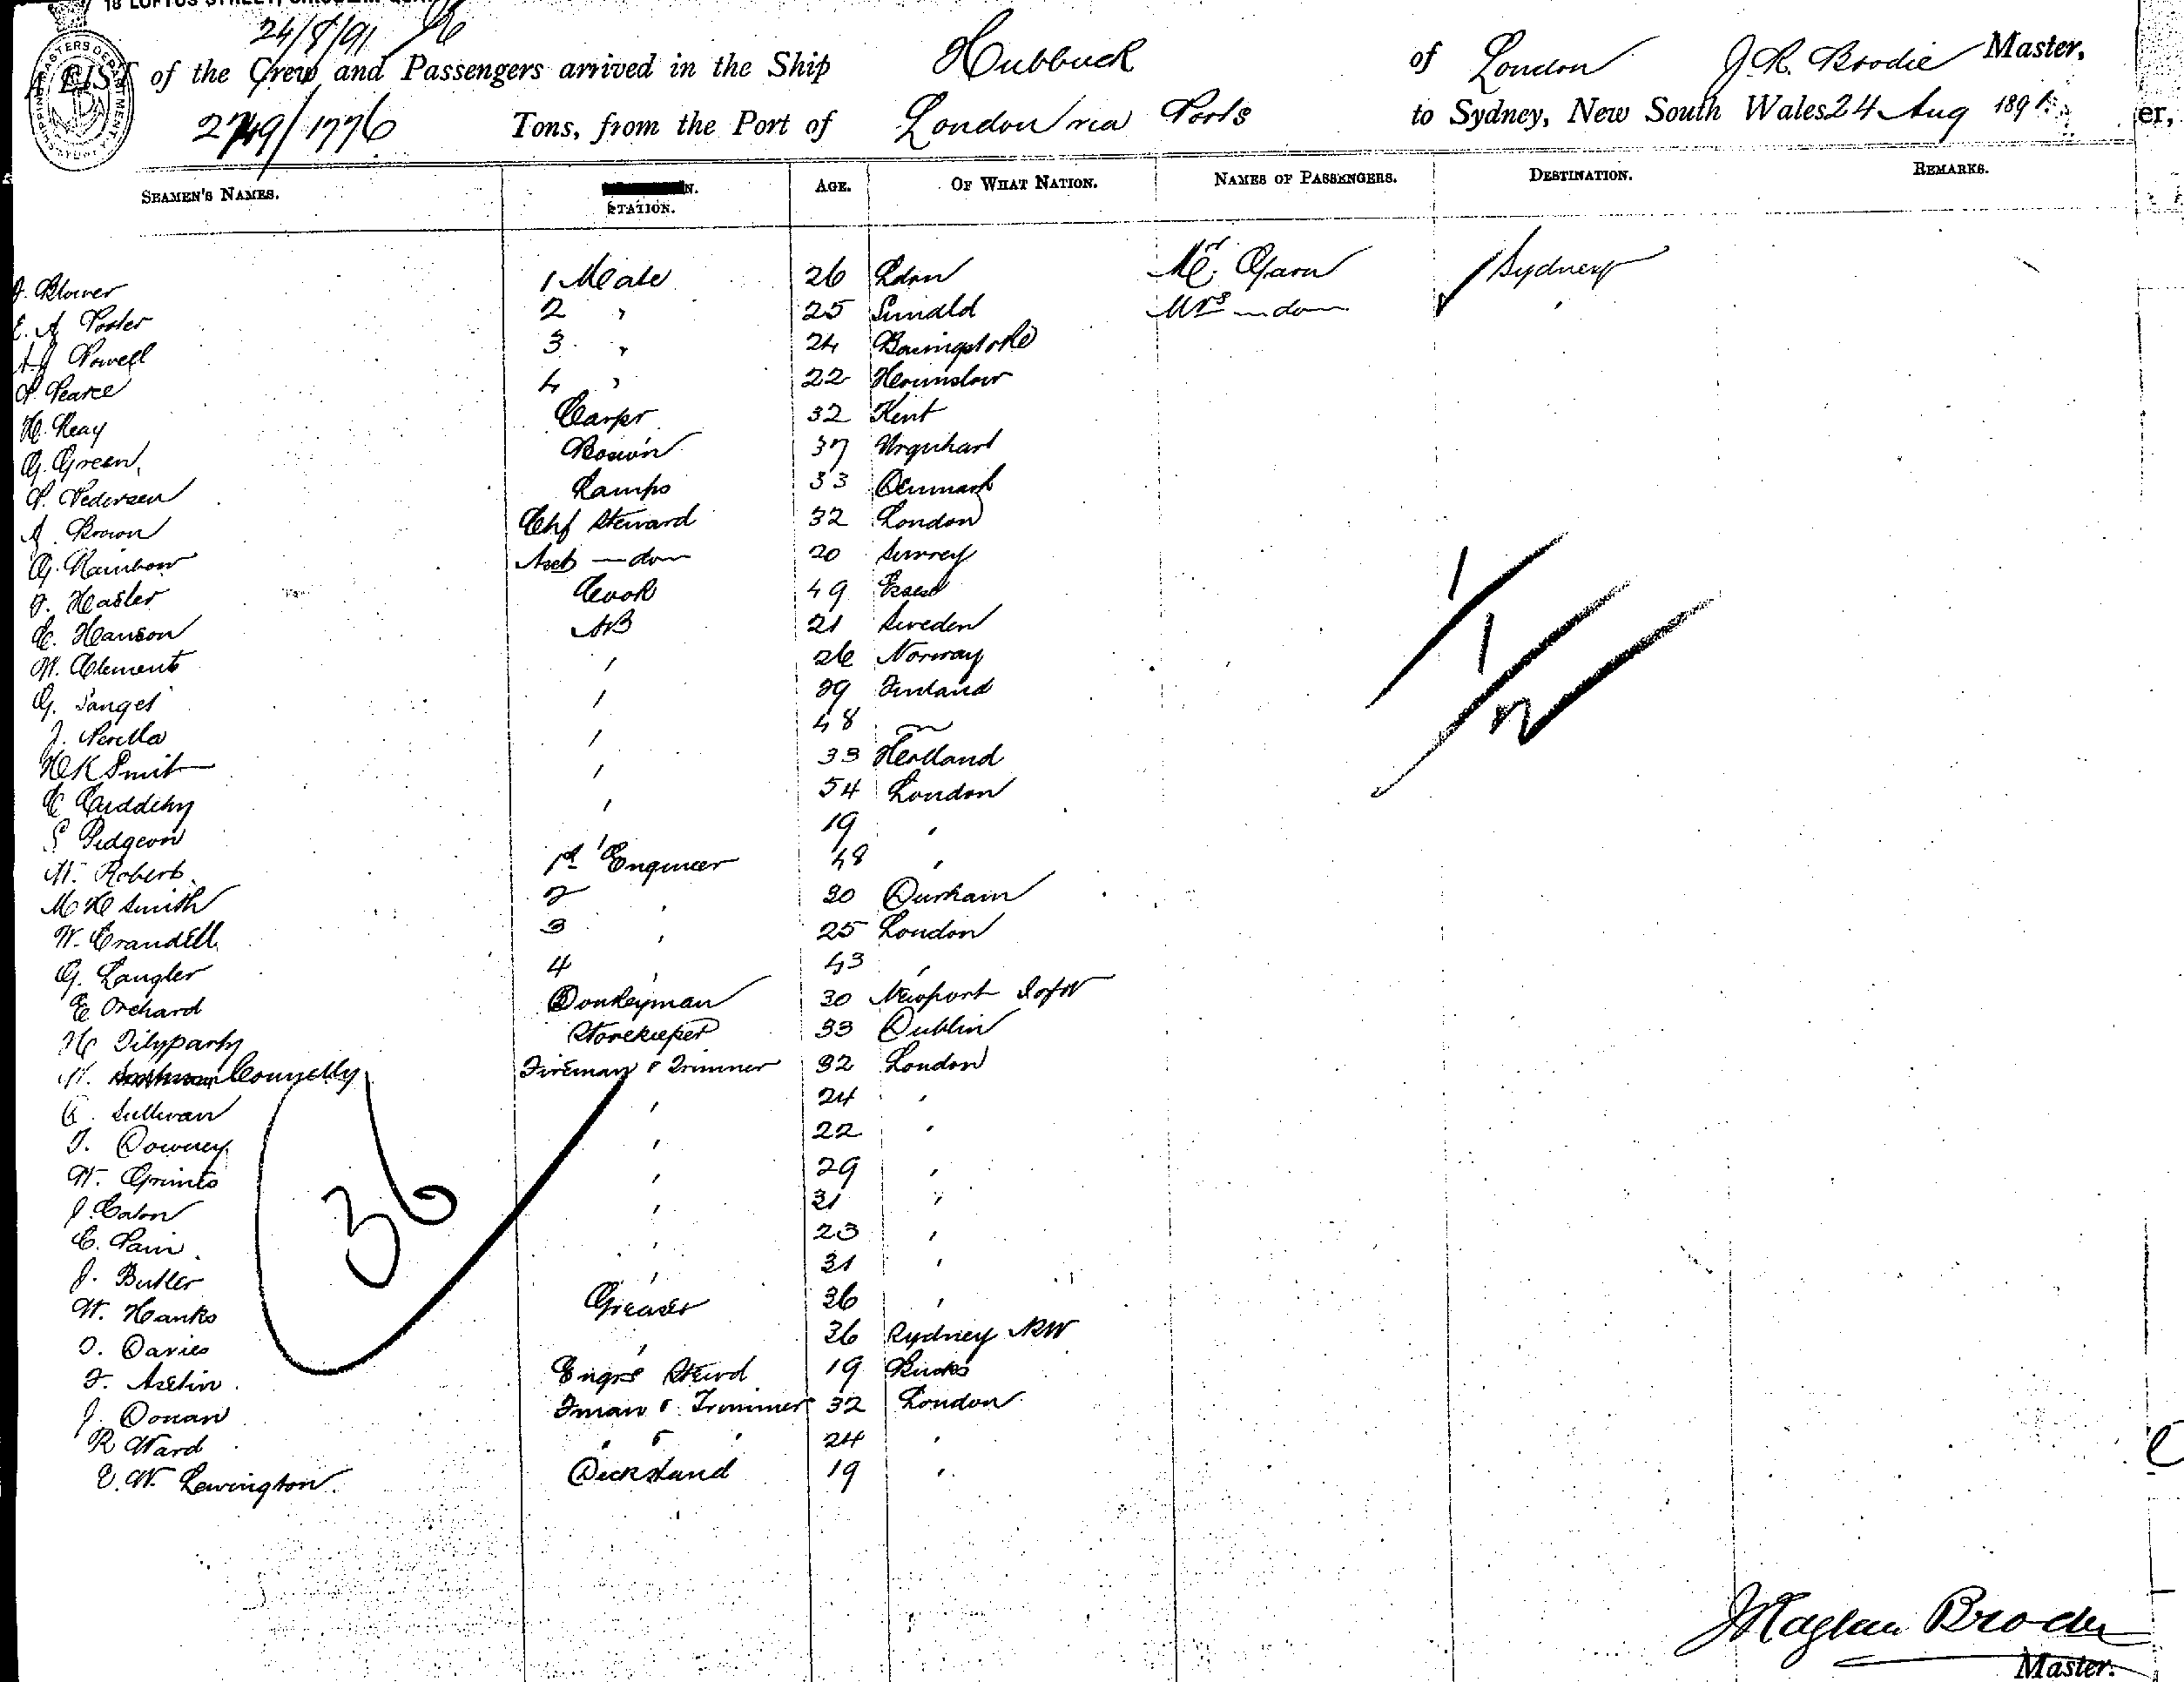 18 LOFTUS STREET, CIRCULAR QUAY
24/8/91
A LIST of the Crew and Passengers arrived in the Ship Hubbuck of London J. R. Brodie Master,
2749/1776 Tons, from the Port of London via Ports to Sydney, New South Wales 24 Aug 1891
SEAMEN'S NAMES. STATION. AGE. OF WHAT NATION. NAMES OF PASSENGERS. DESTINATION. REMARKS.
J. Blower 1 Mate 26 Ldon Mr. Sydney
E. A Porter 2 " 25 Sundld Mrs — do —
A J Powell 3 " 24 Basingstoke
P. Pearce 4 " 22 Hounslow
H. Reay Carpr 32 Kent
G. Green Bosun 37 Urquhart
P. Pedersen Lamps 33 Denmark
A. Brown Chf Steward 32 London
G. Rainbow Asst — do — 20 Surrey
F. Hasler Cook 49 Essex
C. Hanson AB 21 Sweden
W. Clements " 26 Norway
G. Sanget " 29 Finland
J. Perella " 48 "
H K Smit " 33 Holland
C Cuddihy " 54 London
S Pidgeon " 19 "
W. Roberts 1st Engineer 48 "
M H Smith 2 " 30 Durham
W. Crandell 3 " 25 London
G. Langler 4 " 43 "
E Orchard Donkeyman 30 Newport I of W
H Storekeeper 33 Dublin
Connelly Fireman & Trimmer 32 London
Sullivan " 24 "
T. Downey " 22 "
W. Grimes " 29 "
J. Caton " 31 "
C. Pain " 23 "
J. Butler " 31 "
W. Hanks Greaser 36 "
D. Davies " 36 Sydney NSW
F. Aslin Engrs Stewd 19 Bucks
J. Donan Fman & Trimmer 32 London
R Ward " & " 24 "
E. W. Lewington Deckhand 19 "
36
1
1
/2
J Raglan Brodie
Master.